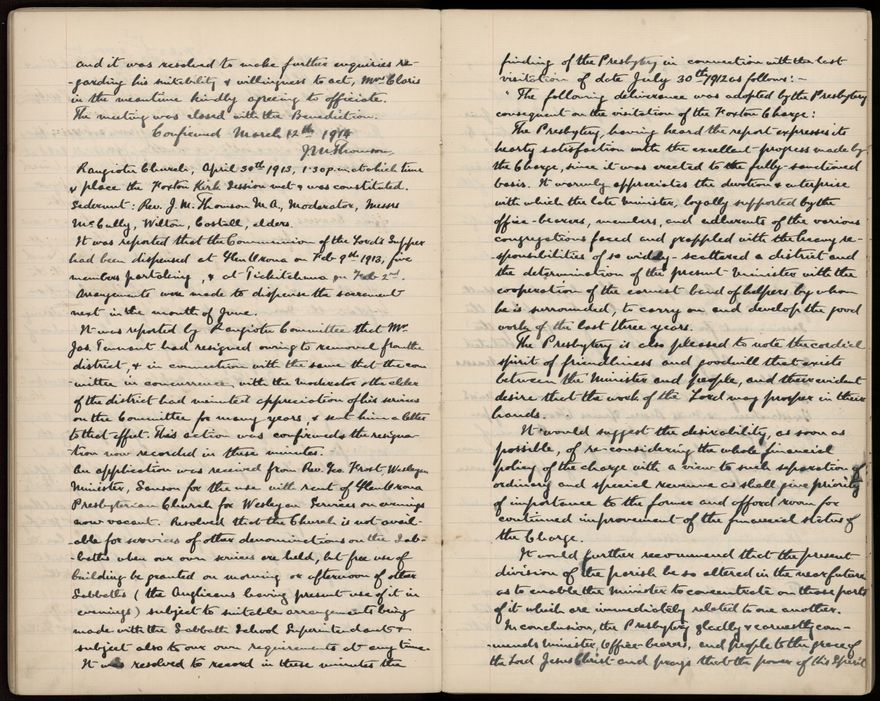 and it was resolved to make further enquiries re-
-garding his suitability & willingness to act, Mrs Claris
in the meantime kindly agreeing to officiate.
The meeting was closed with the Benediction.
Confirmed March 12th 1914
J M Thomson.
Rangiotu Church, April 30th 1913, 1.30 p.m. at which time
& place the Foxton Kirk Session met & was constituted.
Sederunt: Rev. J. M. Thomson M.A., Moderator, Messrs
McCully, Wilton, Costall, elders.
It was reported that the Communion of the Lord's Supper
had been dispensed at Glen Oroua on Feb 9th 1913, five
members partaking, & at on Feb 2nd.
Arrangements were made to dispense the sacrament
next in the month of June.
It was reported by Rangiotu Committee that Mr.
Jas. Tennant had resigned owing to removal from the
district, & in connection with the same that the com-
-mittee in concurrence with the moderator & the elder
of the district had minuted appreciation of his services
on the Committee for many years, & sent him a letter
to that effect. This action was confirmed & the resigna-
-tion now recorded in these minutes.
An application was received from Rev. Geo. Frost Wesleyan
Minister, Sanson for the use with rent of Glen Oroua
Presbyterian Church for Wesleyan Services on evenings
now vacant. Resolved that the Church is not avail-
-able for services of other denominations on the Sab-
-baths when our own services are held, but free use of
building be granted on morning or afternoon of other
Sabbaths (the Anglicans having present use of it in
evenings) subject to suitable arrangements being
made with the Sabbath School Superintendent &
subject also to our own requirements at any time.
It was resolved to record in these minutes the
finding of the Presbytery in connection with the last
visitation of date July 30th 1912 as follows:-
"The following deliverance was adopted by the Presbytery
consequent on the visitation of the Foxton Charge:
The Presbytery, having heard the report expresses its
hearty satisfaction with the excellent progress made by
the Charge, since it was erected to the fully-sanctioned
basis. It warmly appreciates the devotion & enterprise
with which the late Minister, loyally supported by the
office-bearers, members, and adherents of the various
congregations faced and grappled with the heavy re-
sponsibilities of so widely-scattered a district and
the determination of the present Minister with the
cooperation of the earnest band of helpers by whom
he is surrounded, to carry on and develop the good
work of the last three years.
The Presbytery is also pleased to note the cordial
spirit of friendliness and goodwill that exists
between the Minister and people, and their evident
desire that the work of the Lord may prosper in their
hands.
It would suggest the desirability, as soon as
possible, of re-considering the whole financial
policy of the charge with a view to such separation of
ordinary and special revenue as shall give priority
of importance to the former and afford room for
continued improvement of the financial status of
the Charge.
It would further recommend that the present
division of the parish be so altered in the near future
as to enable the Minister to concentrate on those parts
of it which are immediately related to one another.
In conclusion, the Presbytery gladly & earnestly com-
-mends Minister, Office-bearers, and people to the grace of
the Lord Jesus Christ and prays that the power of His Spirit